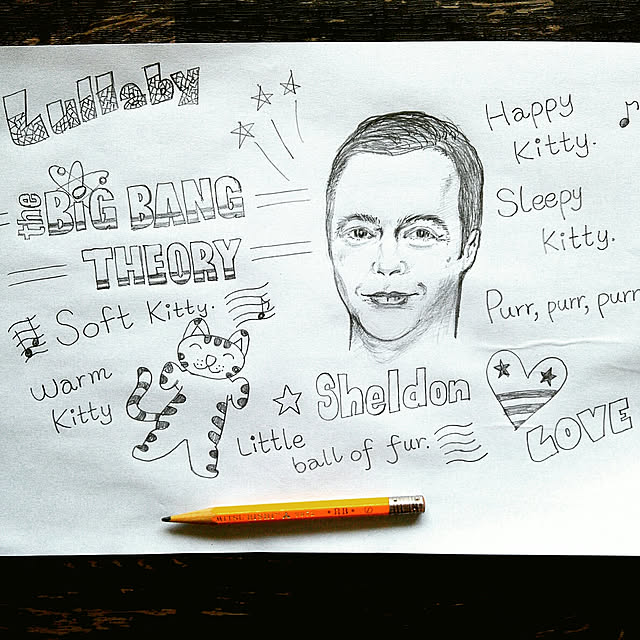 Lullaby
the
BIG BANG
THEORY
Soft Kitty.
Warm
Kitty
Little
ball of fur.
Sheldon
Happy
Kitty.
Sleepy
Kitty.
Purr, purr, purr
LOVE